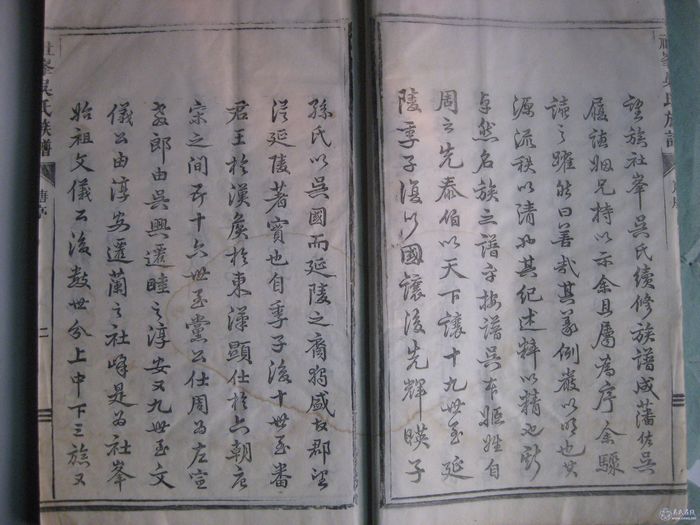 望族社峯吳氏續修族譜成藩佐吳
履德姻兄持以示余且屬為序余驟
讀之躍然曰善哉其義例嚴以明也其
源流秩以清也其紀述粹以精也斯
卓然名族之譜乎按譜吳本姬姓自
周之先泰伯以天下讓十九世至延
陵季子復以國讓後先輝暎子
孫氏以吳國而延陵之裔獨盛故郡望
從延陵著實也自季子後十世至番
君王於漢矦於東漢顯仕於六朝唐
宋之間五十六世至黨公仕周為左宣
教郎由吳興遷睦之淳安又九世至文
儀公由淳安遷蘭之社峰是為社峯
始祖文儀公後數世分上中下三族又
社峯吳氏族譜
二
社峯吳氏族譜